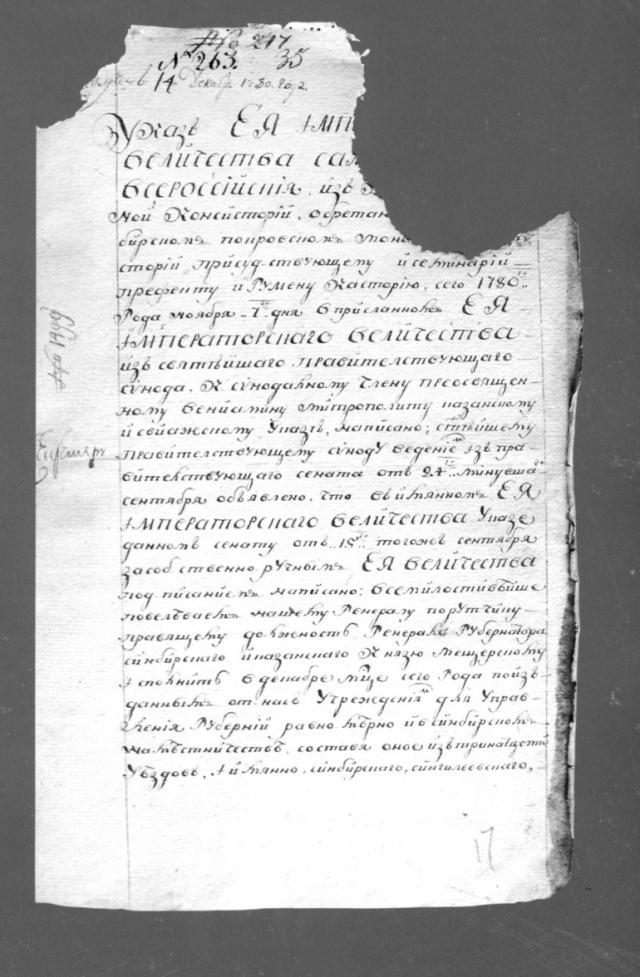 № 217
№ 263. 35
14 Декабр. 1780. году.
Указъ ЕЯ IМПЕ
ВЕЛИЧЕСТВА САМ
ВСЕРОССIЙСКIЯ, изъ
ной Консисторiи, обретаю
бирскомъ покровскомъ мона
сторiи присудствующему и семинарiи
префекту игумену кастор iю, сего 1780го
года ноября 7го дня в присланномъ ЕЯ
IМПЕРАТОРСКАГО ВЕЛИЧЕСТВА
изъ святѣйшаго правителствующаго
сvнода, к сvнодалному члену преосвящен-
ному венiамину митрополиту казанскому
и свiяжскому указѣ, написано; стѣйшему
правителствующему сvноду ведениемъ изъ пра-
вителствующаго сената отъ 24го минувша
сентября объявлено, что въ имянномъ ЕЯ
IМПЕРАТОРСКАГО ВЕЛИЧЕСТВА указе
данномъ сенату отъ 15го тогожъ сентября
за собственноручнымъ ЕЯ ВЕЛИЧЕСТВА
подписанiемъ написано: всемилостивѣйше
повелѣваемъ нашему генералу порутчику
правящему должность генерала губернатора
синбирскаго и казанскаго князю мещерскому
исполнить в декабре мце сего года по изъ-
даннымъ отъ насъ учрежденiямъ для управ-
ленiя губернiй равномѣрно и в синбирскомъ
намѣстничествѣ, составя оное изъ тринатцети
уѣздовъ, имянно, синбирскаго, сингилеевскаго,
17